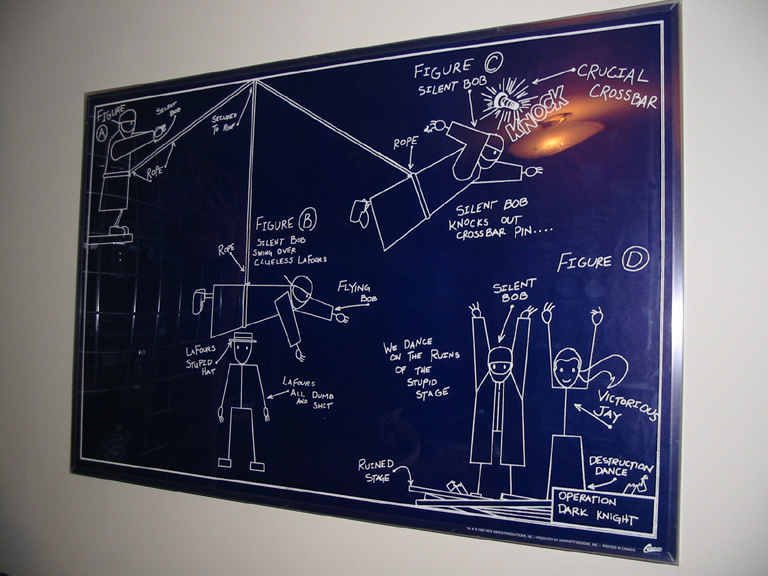 FIGURE
A
SILENT
BOB
ROPE
SECURED
TO ROOF
FIGURE B
SILENT BOB
SWING OVER
CLUELESS LAFOURS
ROPE
FLYING
BOB
LAFOURS
STUPID
HAT
LAFOURS
ALL DUMB
AND SHIT
FIGURE C
SILENT BOB
CRUCIAL
CROSSBAR
KNOCK
ROPE
SILENT BOB
KNOCKS OUT
CROSSBAR PIN....
FIGURE D
SILENT
BOB
WE DANCE
ON THE RUINS
OF THE
STUPID
STAGE
VICTORIOUS
JAY
RUINED
STAGE
DESTRUCTION
DANCE
OPERATION
DARK KNIGHT
PRINTED IN CANADA